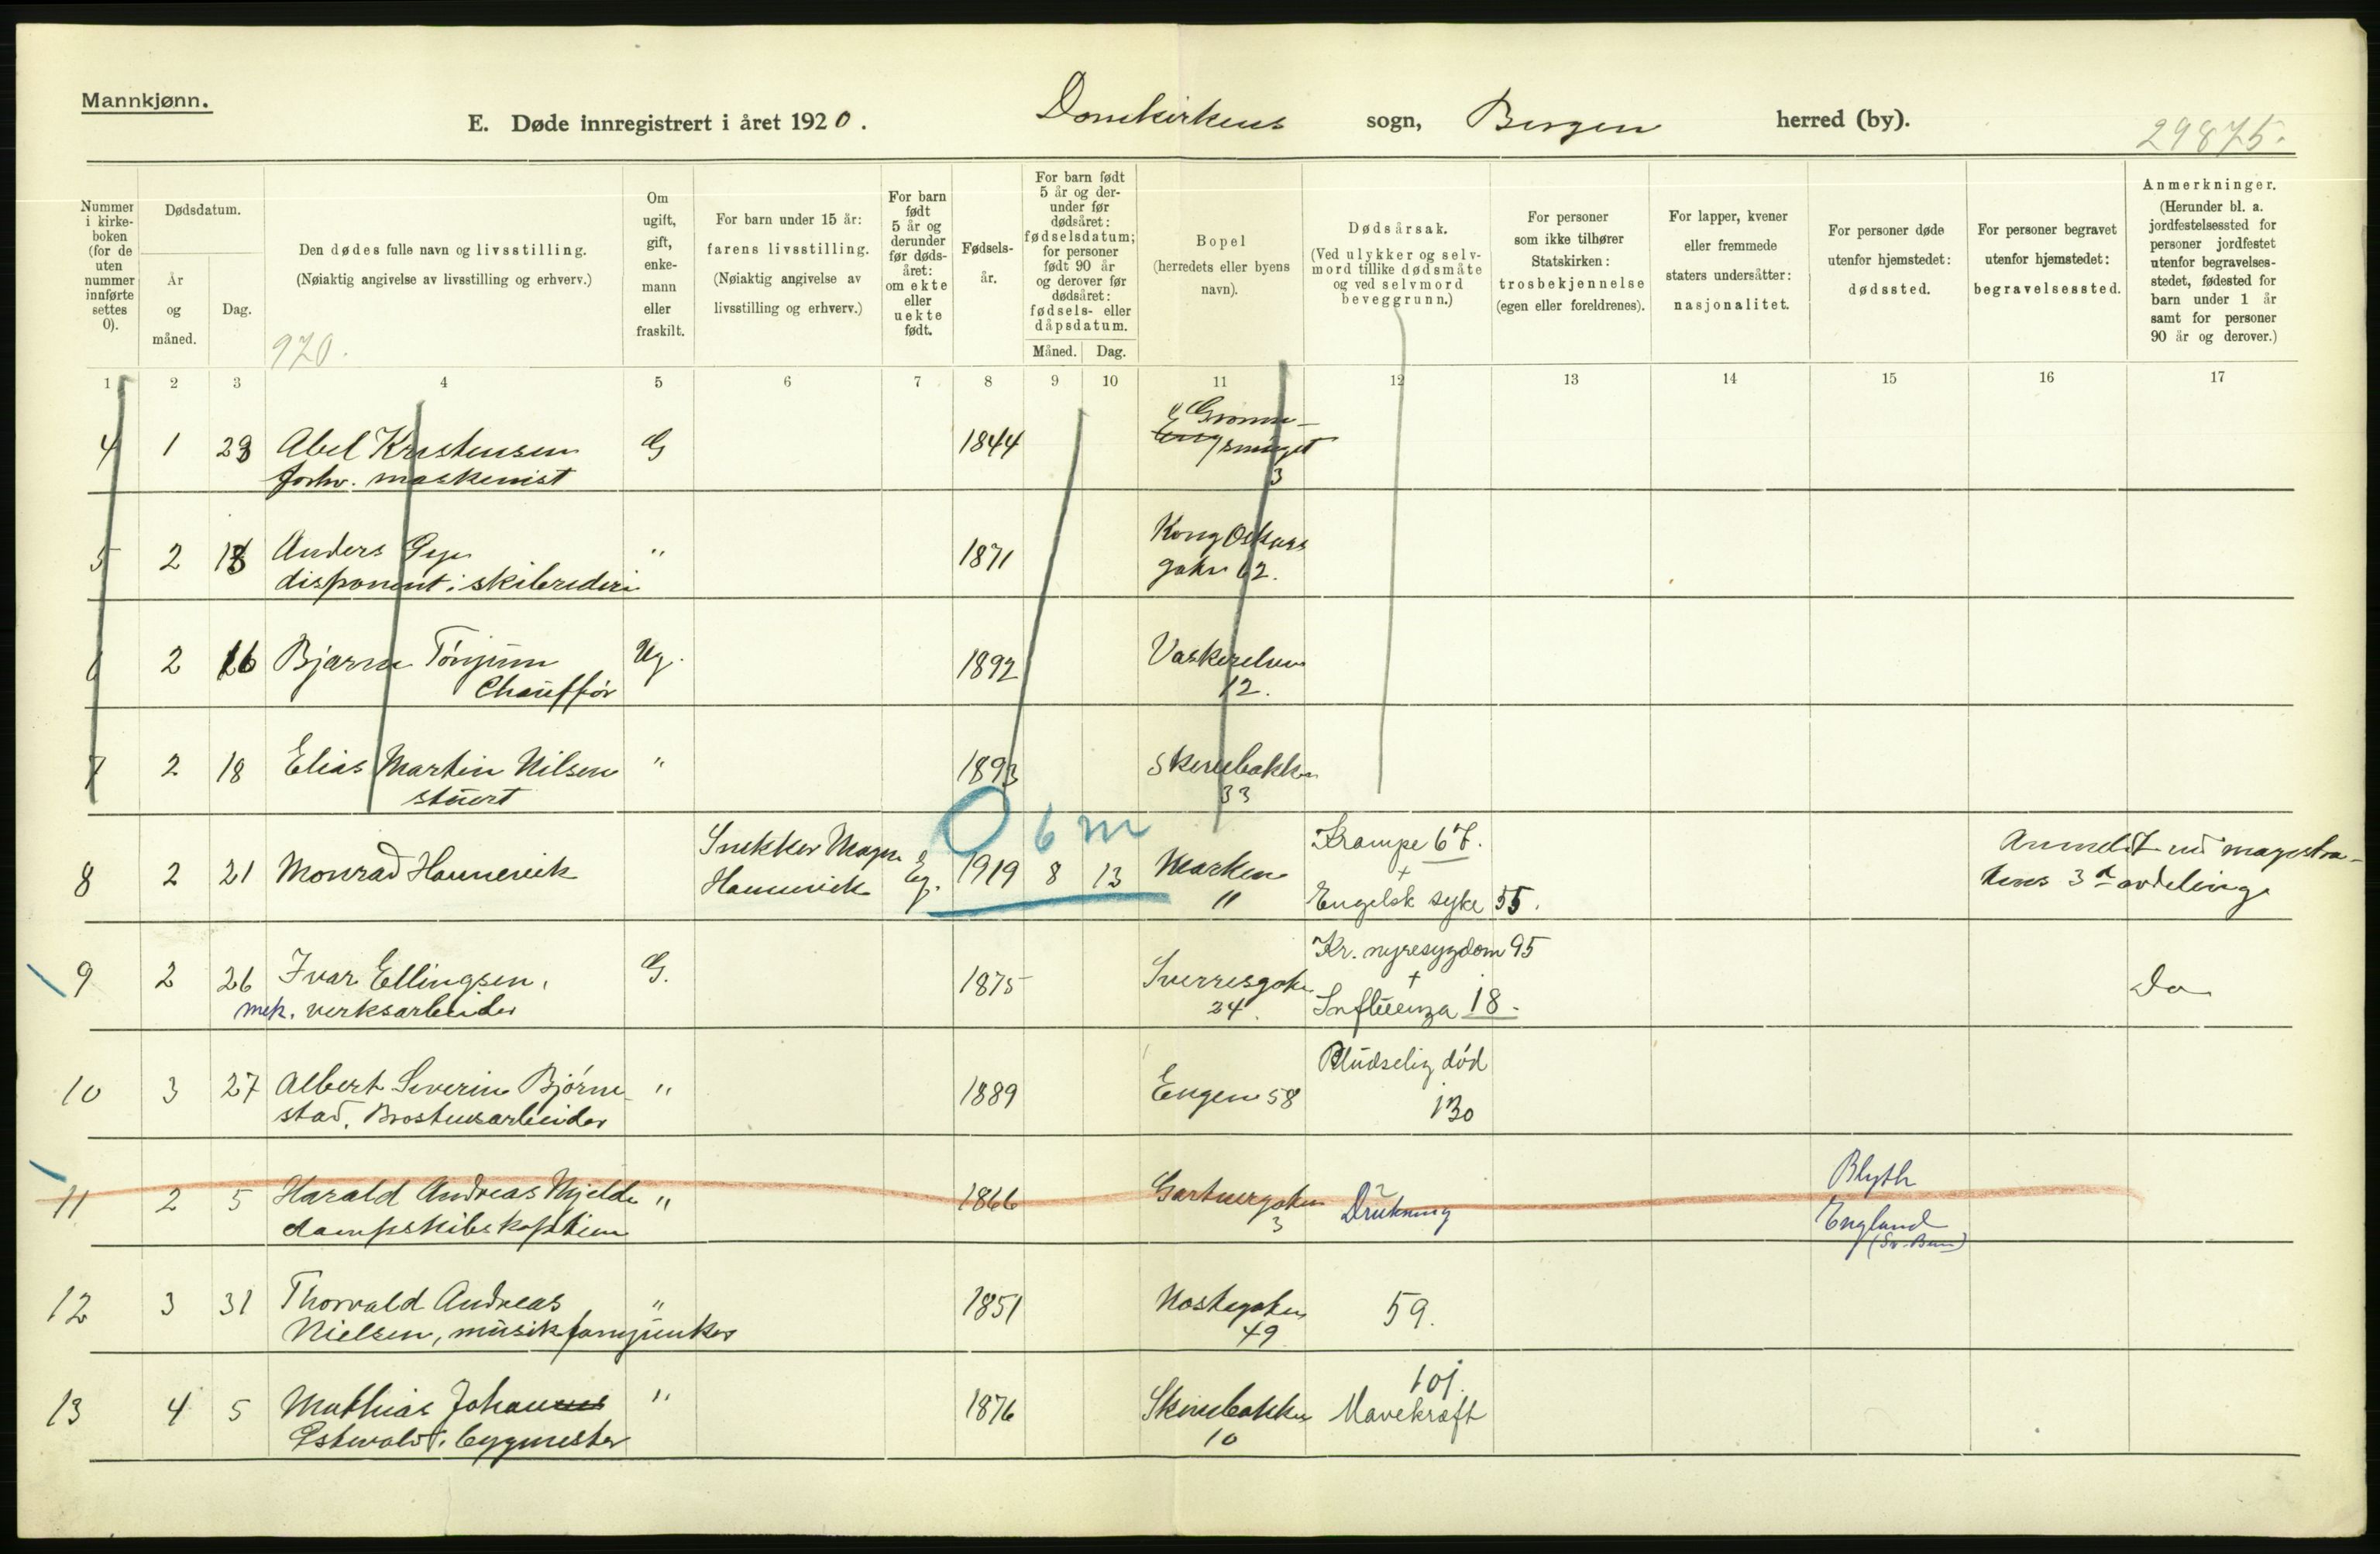 Mannkjønn.
E. Døde innregistrert i året 1920. Domkirkens sogn, Bergen herred (by). 29875.
Nummer i kirke-boken (for de uten nummer innførte settes 0).
Dødsdatum.
År og måned.
Dag.
Den dødes fulle navn og livsstilling.
(Nøiaktig angivelse av livsstilling og erhverv.)
920.
Om ugift, gift, enke-mann eller fraskilt.
For barn under 15 år:
farens livsstilling.
(Nøiaktig angivelse av livsstilling og erhverv.)
For barn født 5 år og derunder før døds-året: om ekte eller uekte født.
Fødsels-år.
For barn født 5 år og der-under før dødsåret: fødselsdatum; for personer født 90 år og derover før dødsåret: fødsels- eller dåpsdatum.
Måned. Dag.
Bopel
(herredets eller byens navn).
Dødsårsak.
(Ved ulykker og selv-mord tillike dødsmåte og ved selvmord beveggrunn.)
For personer som ikke tilhører Statskirken: trosbekjennelse (egen eller foreldrenes).
For lapper, kvener eller fremmede staters undersåtter: nasjonalitet.
For personer døde utenfor hjemstedet: dødssted.
For personer begravet utenfor hjemstedet: begravelsessted.
Anmerkninger.
(Herunder bl. a. jordfestelsessted for personer jordfestet utenfor begravelses-stedet, fødested for barn under 1 år samt for personer 90 år og derover.)
1 2 3 4 5 6 7 8 9 10 11 12 13 14 15 16 17
4 1 23 Abel Kristensen G 1844
forhv. maskinist smuget
3
5 2 18 Anders Gye " 1871 Kong Oskars
disponent i skibsrederi gaten 62.
6 2 16 Bjarne Tønjum Ug. 1892 Vaskerelven
Chauffør 12.
7 2 18 Elias Martin Nilsen " 1893 Skivebakken
stuert 33
0 6 m
8 2 21 Monrad Hannevik Snekker Magn. Eg. 1919 8 13 Marken Krampe 67. Anmeldt ved magistra-
Hannevik 11 + Engelsk syke 55. tens 3d avdeling
9 2 26 Ivar Ellingsen, G. 1875 Sverresgaten Kr. nyresygdom 95 Do
mek. verksarbeider 24. + Influenza 18.
10 3 27 Albert Severin Bjørne- " 1889 Engen 58 Pludselig død
stad, Brostensarbeider 130
11 2 5 Harald Andreas Mjelde " 1866 Gartnergaten Drukning Blyth
dampskibskaptein 3 England
12 3 31 Thorvald Andreas " 1851 Nostegaten 59.
Nielsen, musikfanejunker 49
13 4 5 Mathias Johannes " 1876 Skivebakken 101.
Estvaldt. bygmester 10 Mavekræft